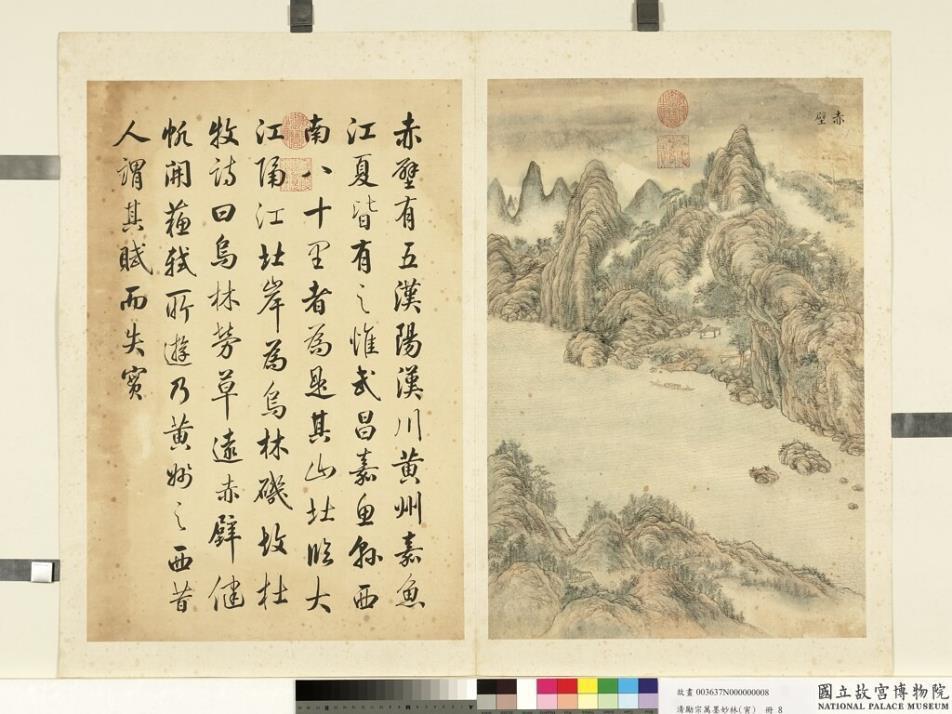 赤壁
赤壁有五漢陽漢川黄州嘉魚
江夏皆有之惟武昌嘉魚縣西
南八十里者為是其山北臨大
江隔江北岸為烏林磯故杜
牧詩曰烏林芳草遠赤壁健
帆開蘇軾所遊乃黄州之西昔
人謂其賦而失實
故畫 003637N000000008
清勵宗萬墨妙林(寅) 冊 8
國立故宮博物院
NATIONAL PALACE MUSEUM